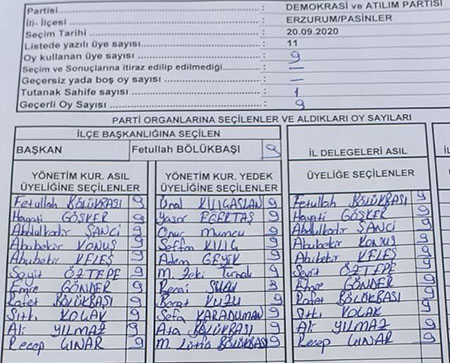 Partisi : DEMOKRASİ ve ATILIM PARTİSİ
İli- İlçesi : ERZURUM/PASİNLER
Seçim Tarihi : 20.09.2020
Listede yazılı üye sayısı : 11
Oy kullanan üye sayısı : 9
Seçim ve Sonuçlarına itiraz edilip edilmediği :
Geçersiz yada boş oy sayısı : -
Tutanak Sahife sayısı : 1
Geçerli Oy Sayısı : 9
PARTİ ORGANLARINA SEÇİLENLER VE ALDIKLARI OY SAYILARI
İLÇE BAŞKANLIĞINA SEÇİLEN
BAŞKAN Fetullah BÖLÜKBAŞI 9
İL DELEGELERİ ASIL
ÜYELİĞE SEÇİLENLER
YÖNETİM KUR. ASIL ÜYELİĞİNE SEÇİLENLER
Fetullah BÖLÜKBAŞI 9
Hayati GÖŞKER 9
Abdulkadir SANCİ 9
Abubekir KONUŞ 9
Abubekir KELEŞ 9
Seyit ÖZTEPE 9
Emre GÖNDER 9
Rafet BÖLÜKBAŞI 9
Sıtkı KOLAK 9
Ali YILMAZ 9
Recep ÇINAR 9
YÖNETİM KUR. YEDEK ÜYELİĞİNE SEÇİLENLER
Ünal 9
Yaşar 9
Onur Muncu 9
KILIÇ 9
Adem 9
M. Zeki 9
9
KUZU 9
Sefa KARADUMAN 9
Ata BÖLÜKBAŞI 9
M. Lütfü BÖLÜKBAŞI 9
Fetullah BÖLÜKBAŞI 9
Hayati GÖŞKER 9
Abdulkadir SANCİ 9
Abubekir KONUŞ 9
Abubekir KELEŞ 9
Seyit ÖZTEPE 9
Emre GÖNDER 9
Rafet BÖLÜKBAŞI 9
Sıtkı KOLAK 9
Ali YILMAZ 9
Recep ÇINAR 9